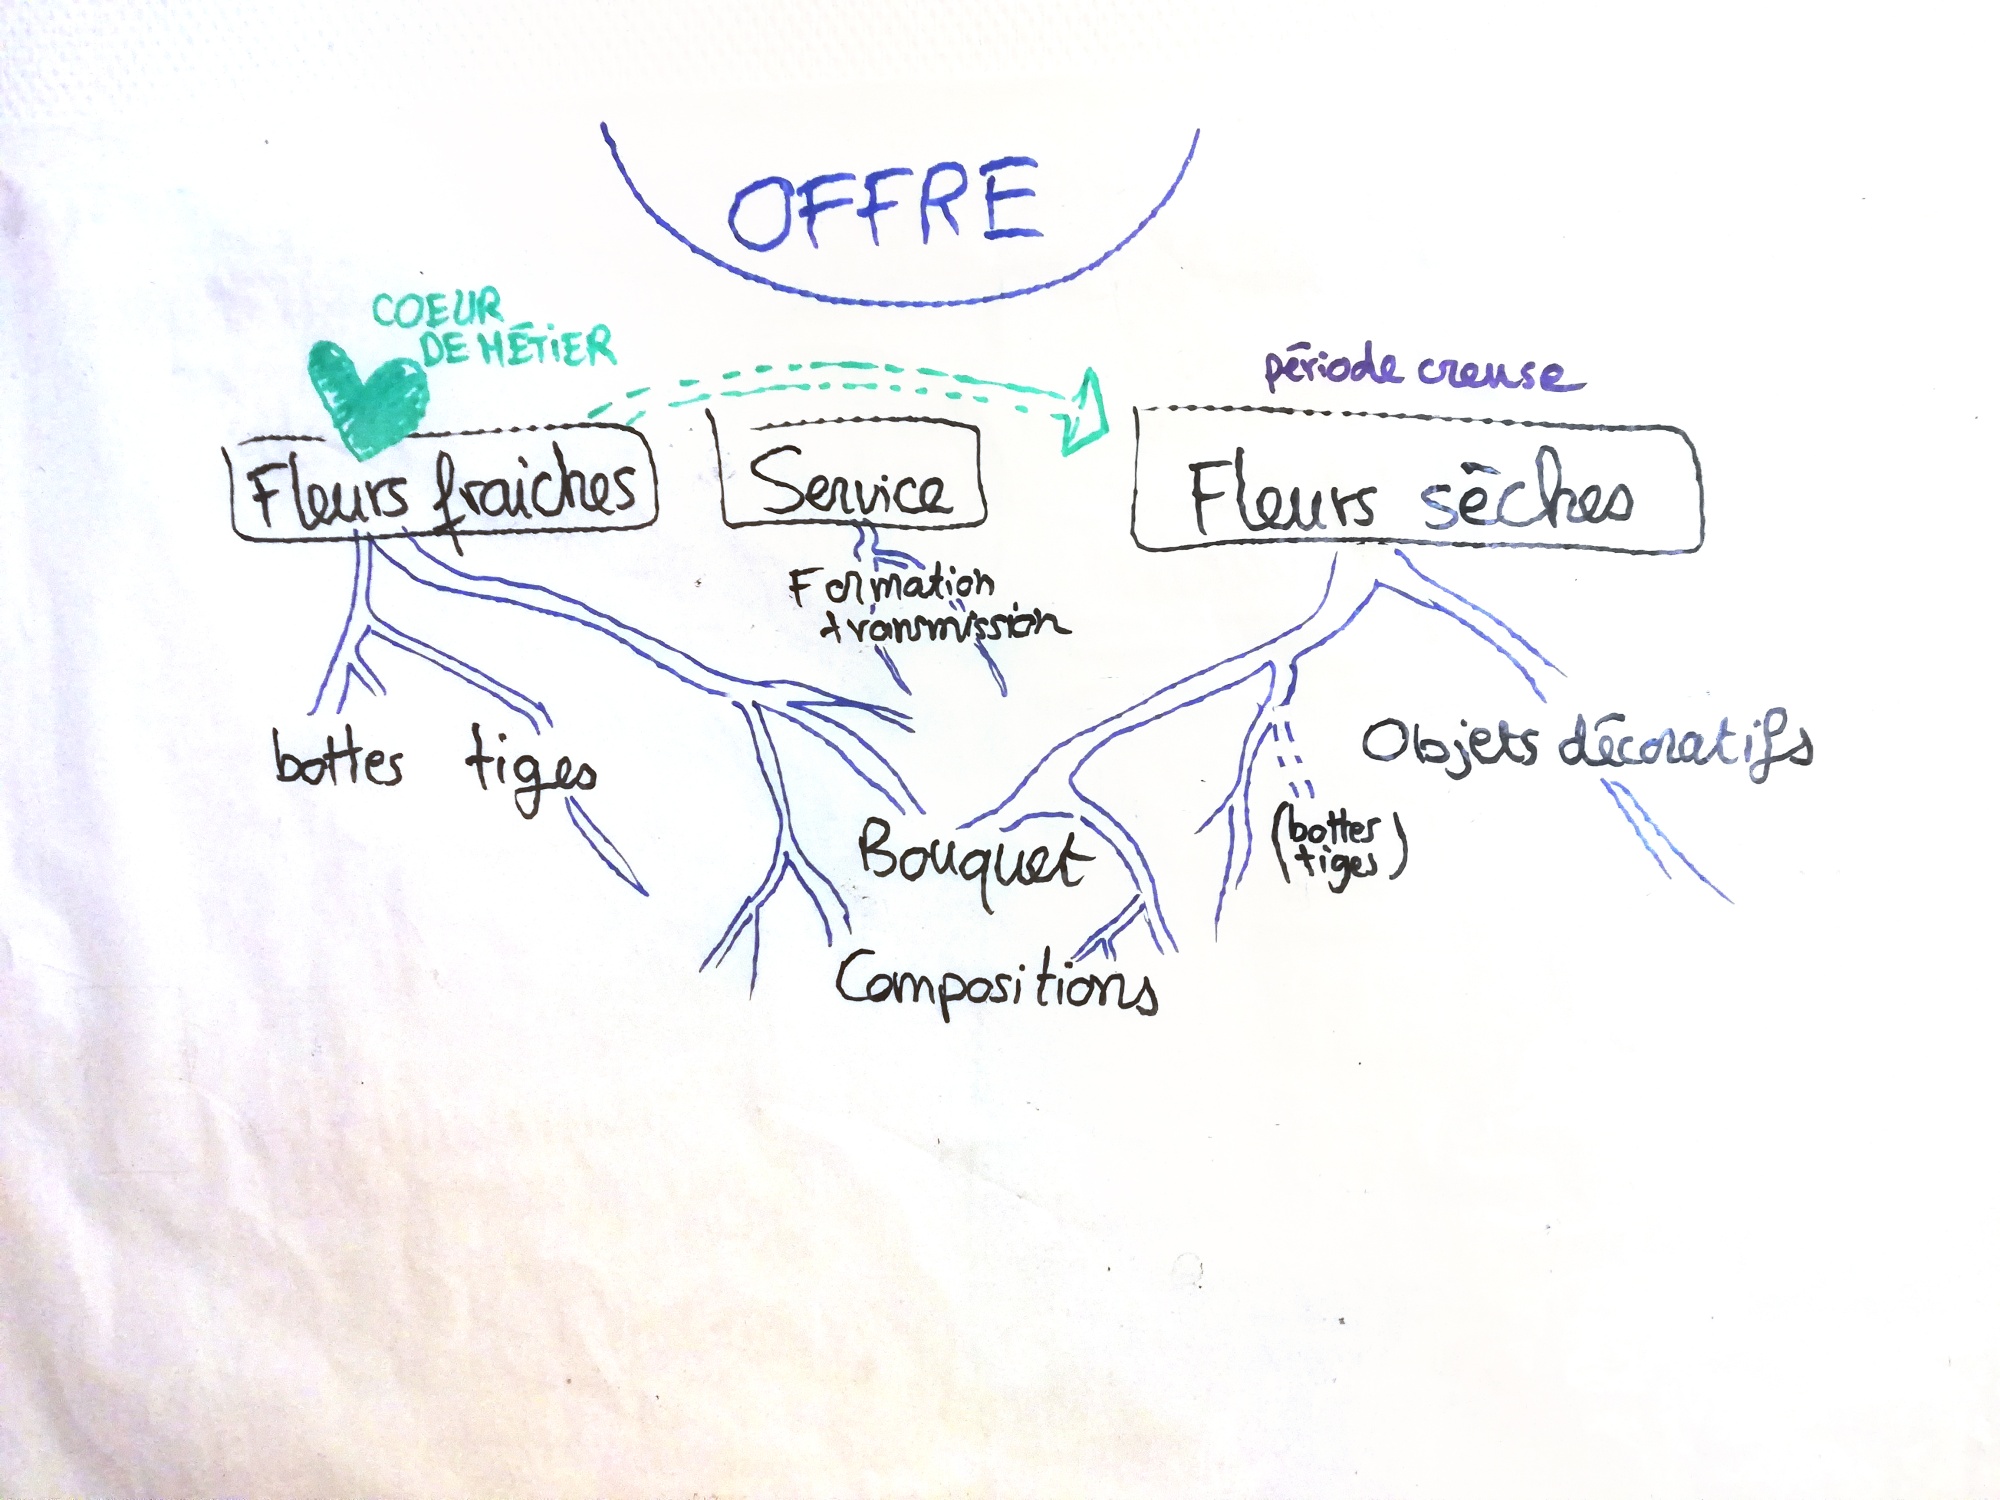 OFFRE
COEUR
DE MÉTIER
période creuse
Fleurs fraiches
Service
Fleurs sêches
Formation
transmission
bottes
tiges
Objets décoratifs
Bouquet
(bottes
tiges)
Compositions